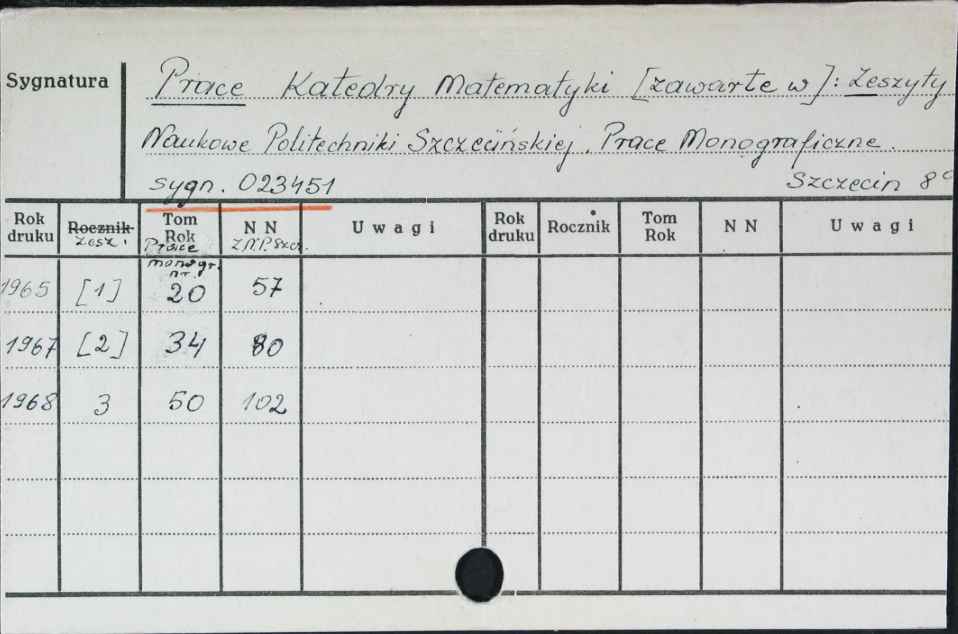 Sygnatura
Prace Katedry Matematyki [zawarte w]: Zeszyty
Naukowe Politechniki Szczecińskiej. Prace Monograficzne.
sygn. 023451 Szczecin 8°
Rok druku Rocznik Tom Rok N N Uwagi Rok druku Rocznik Tom Rok N N Uwagi
zesz. Prace monogr. nr. Z.N.P.Szcz.
1965 [1] 20 57
1967 [2] 34 80
1968 3 50 102